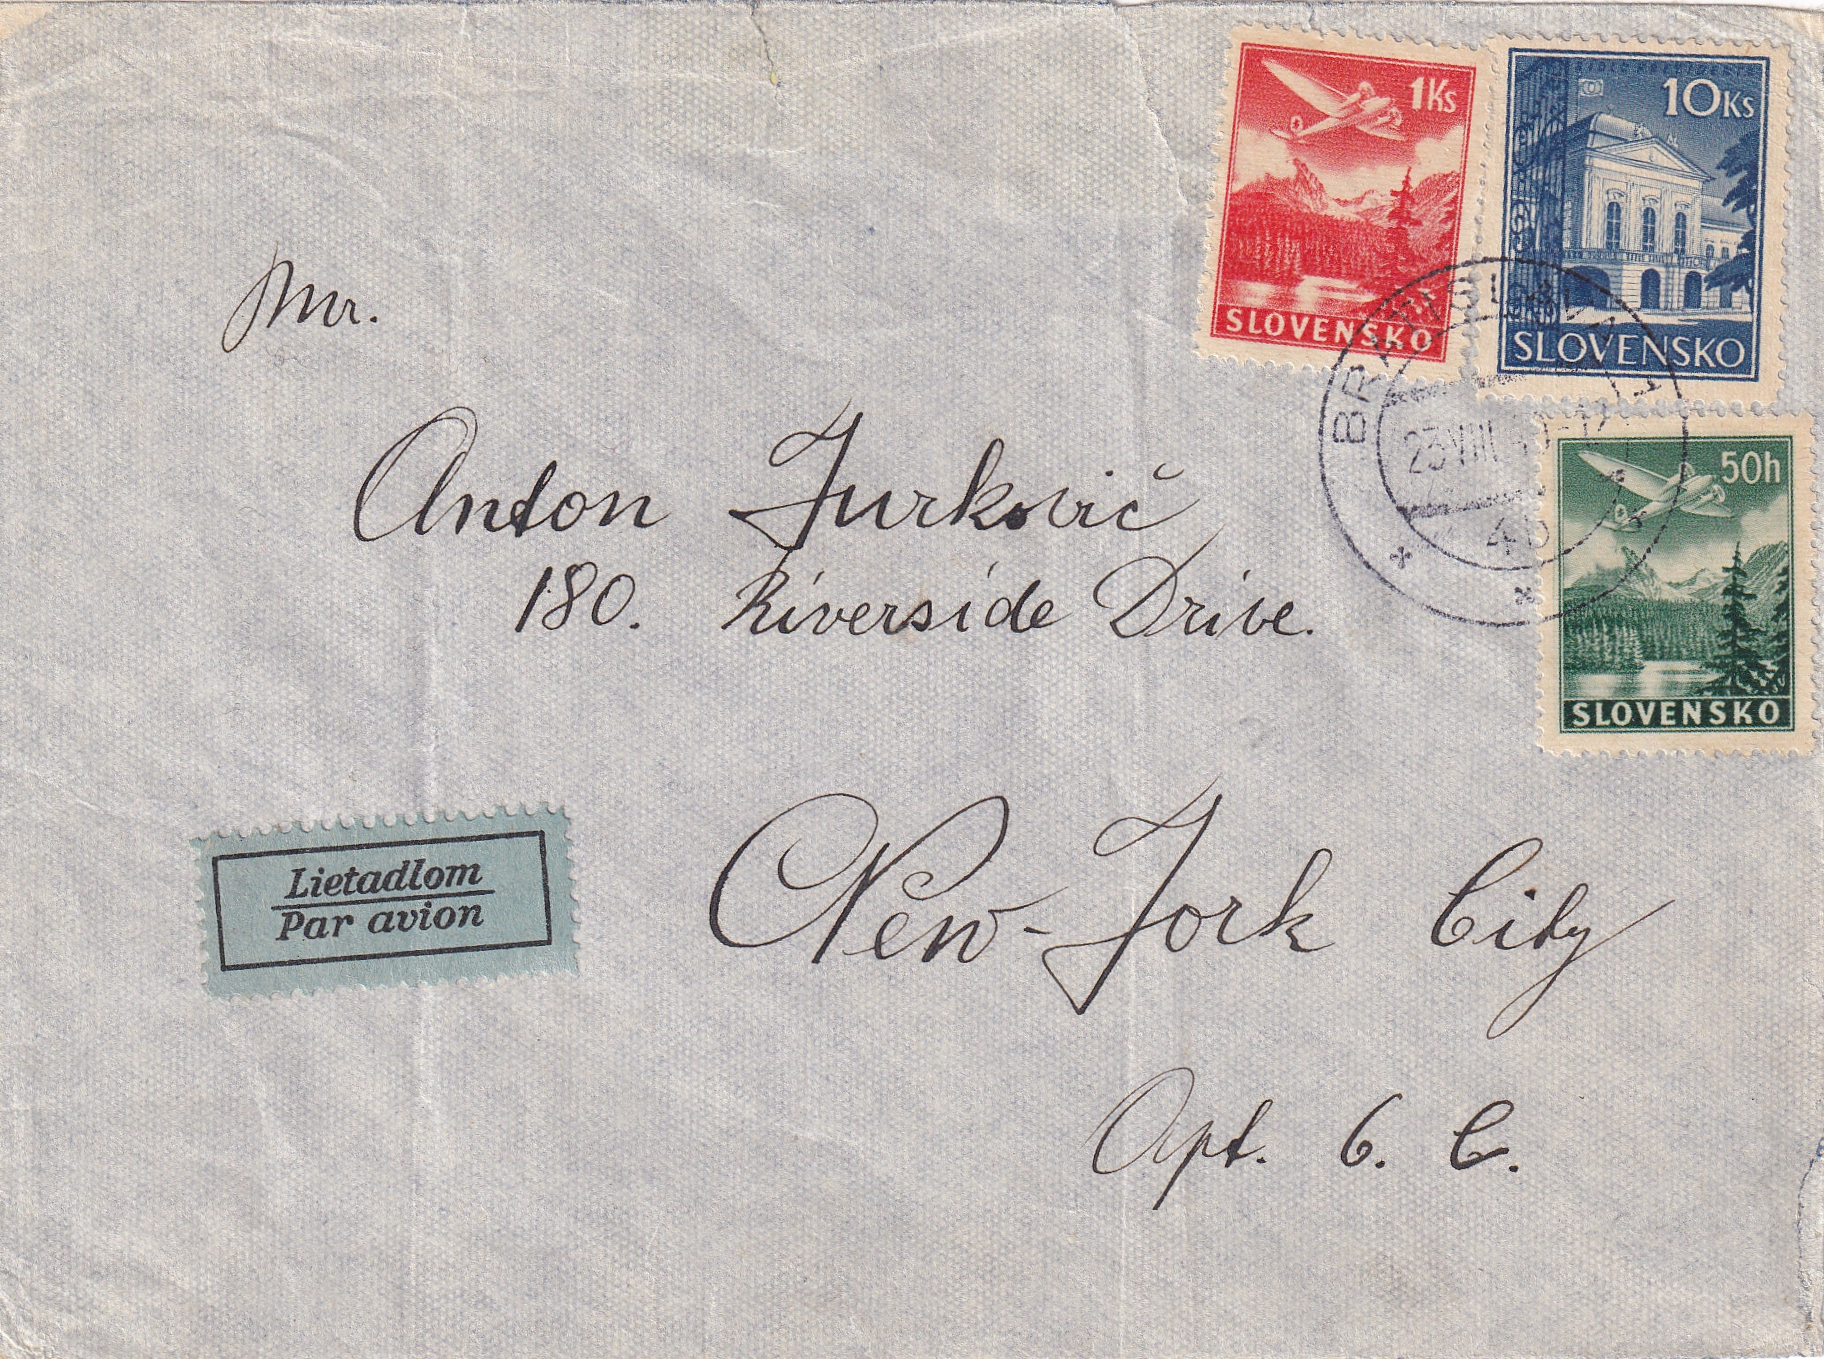 1Ks
SLOVENSKO
10Ks
SLOVENSKO
50h
SLOVENSKO
BRATISLAVA 1
23.VIII.40-12
4b
Mr.
Anton Jurkovič
180. Riverside Drive.
New-Jork City
Apt. 6. C.
Lietadlom
Par avion